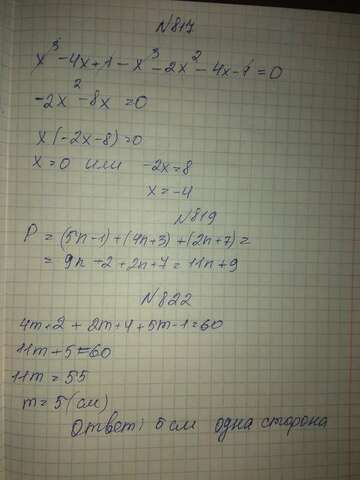 №817
x³-4x+1-x³-2x²-4x-1=0
-2x²-8x=0
x(-2x-8)=0
x=0 или -2x=8
x=-4
№819
P=(5n-1)+(4n+3)+(2n+7)=
=9n+2+2n+7=11n+9
№822
4m+2+2m+4+5m-1=60
11m+5=60
11m=55
m=5(см)
Ответ: 5 см одна сторона